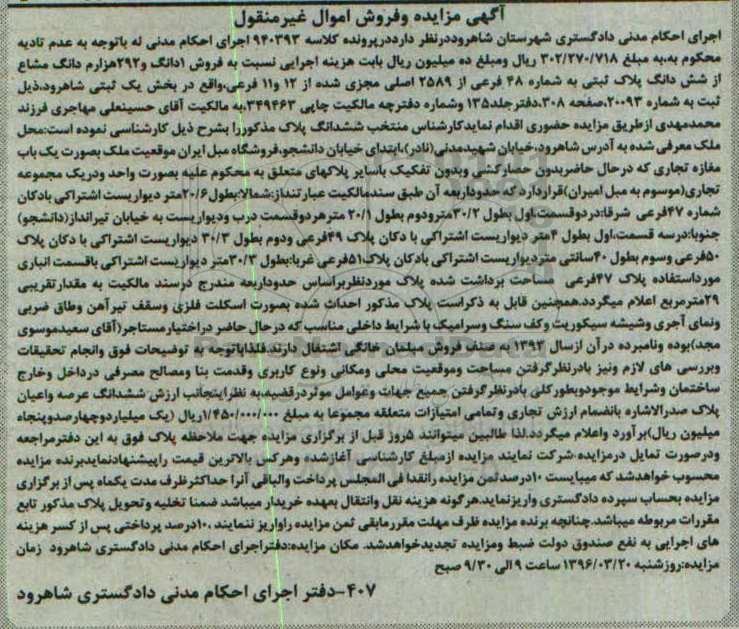 آگهی مزایده وفروش اموال غیرمنقول
اجرای احکام مدنی دادگستری شهرستان شاهروددرنظر دارددرپرونده کلاسه ۹۴۰۳۹۳ اجرای احکام مدنی له باتوجه به عدم تادیه
محکوم به،به مبلغ ۳۰۲/۲۷۰/۷۱۸ ریال ومبلغ ده میلیون ریال بابت هزینه اجرایی نسبت به فروش ۱دانگ و۲۹۲هزارم دانگ مشاع
از شش دانگ پلاک ثبتی به شماره ۴۸ فرعی از ۲۵۸۹ اصلی مجزی شده از ۱۲ و۱۱ فرعی،واقع در بخش یک ثبتی شاهرود،ذیل
ثبت به شماره ۲۰۰۹۳،صفحه ۳۰۸،دفترجلد۱۳۵ وشماره دفترچه مالکیت چاپی ۳۴۹۴۶۳،به مالکیت آقای حسینعلی مهاجری فرزند
محمدمهدی ازطریق مزایده حضوری اقدام نمایدکارشناس منتخب ششدانگ پلاک مذکوررا بشرح ذیل کارشناسی نموده است:محل
ملک معرفی شده به آدرس شاهرود،خیابان شهیدمدنی(نادر)،ابتدای خیابان دانشجو،فروشگاه مبل ایران موقعیت ملک بصورت یک باب
مغازه تجاری که درحال حاضربدون حصارکشی وبدون تفکیک باسایر پلاکهای متعلق به محکوم علیه بصورت واحد ودریک مجموعه
تجاری(موسوم به مبل امیران)قراردارد که حدوداربعه آن طبق سندمالکیت عبارتنداز:شمالا:بطول۲۰/۶متر دیواریست اشتراکی بادکان
شماره ۴۷فرعی شرقا:دردوقسمت،اول بطول ۳۰/۲مترودوم بطول ۲۰/۱ مترهردوقسمت درب ودیواریست به خیابان تیرانداز(دانشجو)
جنوبا:درسه قسمت،اول بطول ۴متر دیواریست اشتراکی با دکان پلاک ۴۹فرعی ودوم بطول ۳۰/۳ دیواریست اشتراکی با دکان پلاک
۵۰فرعی وسوم بطول ۴۰سانتی متردیواریست اشتراکی بادکان پلاک۵۱فرعی غربا:بطول ۳۰/۳متر دیواریست اشتراکی باقسمت انباری
مورداستفاده پلاک ۴۷فرعی مساحت برداشت شده پلاک موردنظربراساس حدوداربعه مندرج درسند مالکیت به مقدارتقریبی
۲۹مترمربع اعلام میگردد.همچنین قابل به ذکراست پلاک مذکور احداث شده بصورت اسکلت فلزی وسقف تیرآهن وطاق ضربی
ونمای آجری وشیشه سیکوریت وکف سنگ وسرامیک با شرایط داخلی مناسب که درحال حاضر دراختیارمستاجر(آقای سعیدموسوی
مجد)بوده ونامبرده درآن ازسال ۱۳۹۳ به صنف فروش مبلمان خانگی اشتغال دارند.فلذاباتوجه به توضیحات فوق وانجام تحقیقات
وبررسی های لازم ونیز بادرنظرگرفتن مساحت وموقعیت محلی ومکانی ونوع کاربری وقدمت بنا ومصالح مصرفی درداخل وخارج
ساختمان وشرایط موجودوبطورکلی بادرنظرگرفتن جمیع جهات وعوامل موثردرقضیه،به نظراینجانب ارزش ششدانگ عرصه واعیان
پلاک صدرالاشاره بانضمام ارزش تجاری وتمامی امتیازات متعلقه مجموعا به مبلغ ۱/۴۵۰/۰۰۰/۰۰۰ریال (یک میلیاردوچهارصدوپنجاه
میلیون ریال)برآورد واعلام میگردد.لذا طالبین میتوانند ۵روز قبل از برگزاری مزایده جهت ملاحظه پلاک فوق به این دفترمراجعه
ودرصورت تمایل درمزایده،شرکت نمایند مزایده ازمبلغ کارشناسی آغازشده وهرکس بالاترین قیمت راپیشنهادنمایدبرنده مزایده
محسوب خواهدشد که میبایست ۱۰درصدثمن مزایده رانقدا فی المجلس پرداخت والباقی آنرا حداکثرظرف مدت یکماه پس از برگزاری
مزایده بحساب سپرده دادگستری واریزنماید.هرگونه هزینه نقل وانتقال بعهده خریدار میباشد ضمنا تخلیه وتحویل پلاک مذکور تابع
مقررات مربوطه میباشد.چنانچه برنده مزایده ظرف مهلت مقررمابقی ثمن مزایده راواریز ننمایند ،۱۰درصد پرداختی پس از کسر هزینه
های اجرایی به نفع صندوق دولت ضبط ومزایده تجدیدخواهدشد. مکان مزایده:دفتراجرای احکام مدنی دادگستری شاهرود زمان
مزایده:روزشنبه ۱۳۹۶/۰۳/۲۰ ساعت ۹ الی ۹/۳۰ صبح
۴۰۷-دفتر اجرای احکام مدنی دادگستری شاهرود